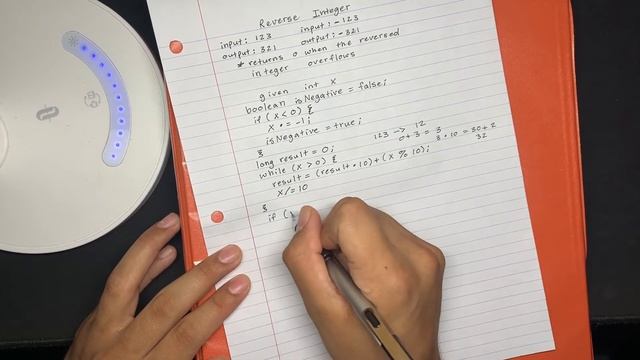 Reverse Integer
input: 123 input: -123
output: 321 output: -321
* returns 0 when the reversed
integer overflows
given int x
boolean isNegative = false;
if (x < 0) {
x *= -1;
isNegative = true;
}
long result = 0; 123 -> 12
while (x > 0) { 0 + 3 = 3
3 * 10 = 30 + 2
32
result = (result * 10) + (x % 10);
x /= 10
}
if (